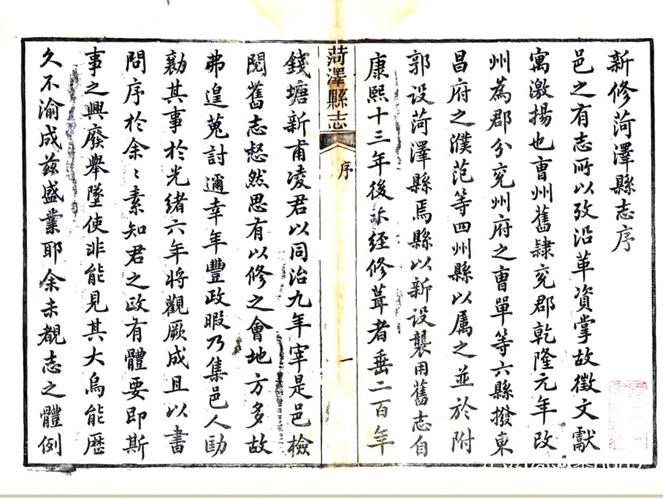 新修菏澤縣志序
邑之有志所以攷沿革資掌故徵文獻
寓激揚也曹州舊隸兖郡乾隆元年改
州為郡分兖州府之曹單等六縣撥東
昌府之濮范等四州縣以屬之並於附
郭設菏澤縣焉縣以新設襲用舊志自
康熙十三年後未經修葺者垂二百年
菏澤縣志
序
一
錢塘新甫凌君以同治九年宰是邑檢
閱舊志惄然思有以修之會地方多故
弗遑蒐討邇幸年豐政暇乃集邑人勷
勷其事於光緒六年將觀厥成且以書
問序於余〻素知君之政有體要即斯
事之興廢舉墜使非能見其大烏能歷
久不渝成兹盛業耶余未覩志之體例